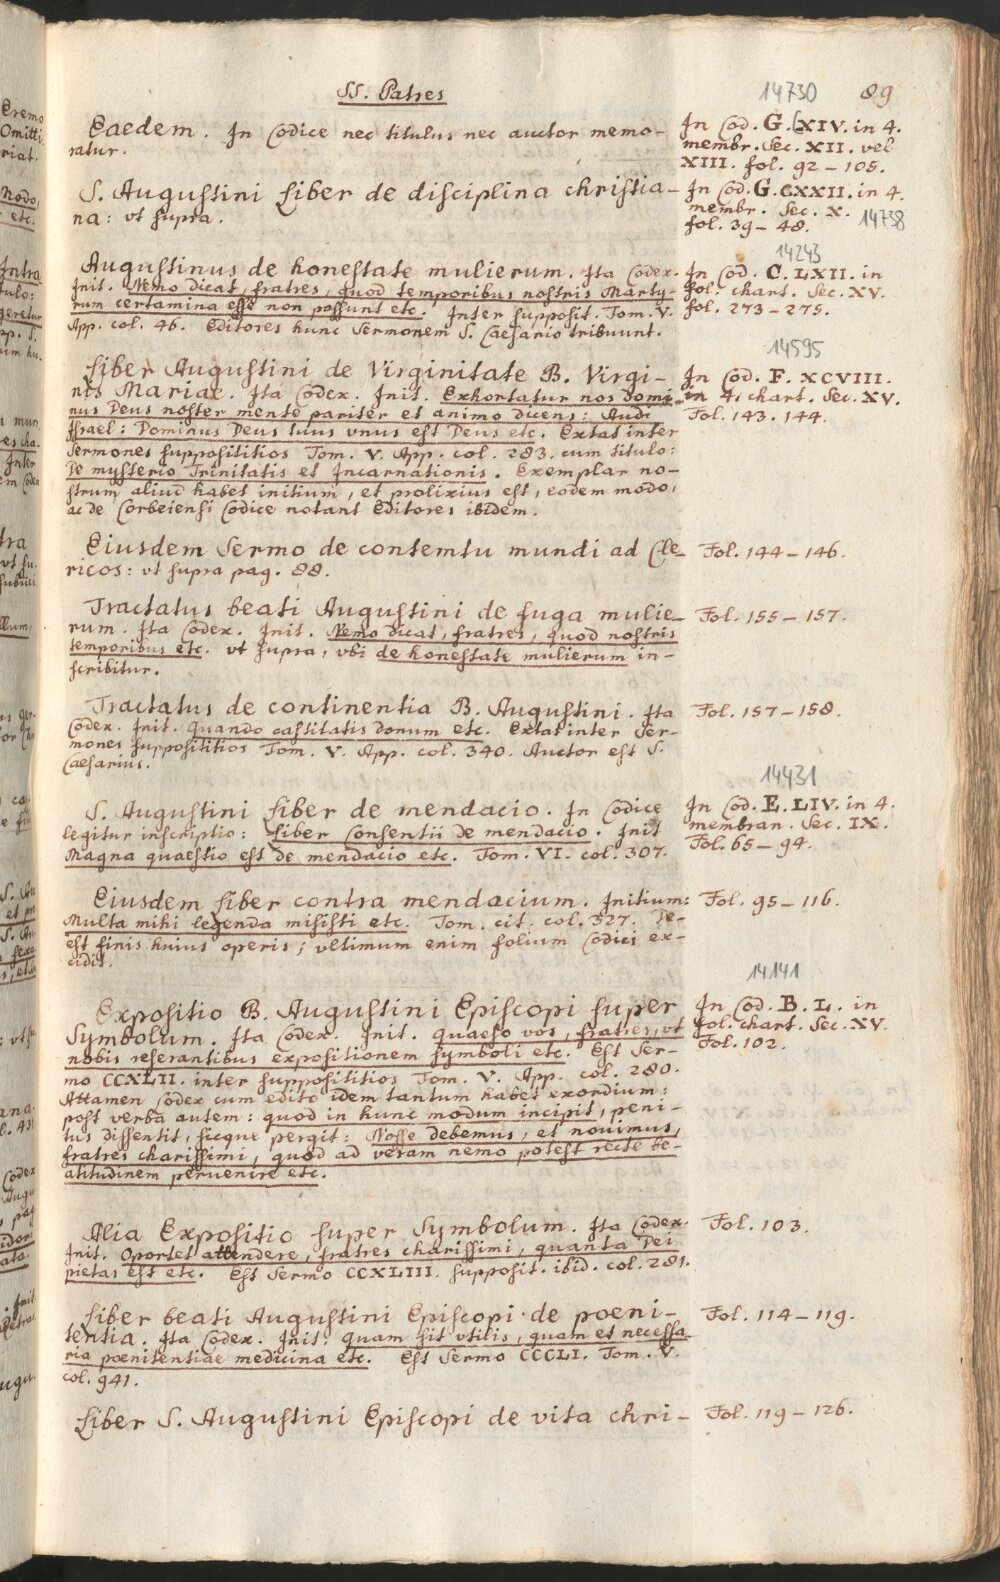 SS. Patres
14730 89
Eaedem. In Codice nec titulus nec auctor memo-
ratur.
In Cod. G. CXIV. in 4.
membr. Sec. XII. vel
XIII. fol. 92 – 105.
S. Augustini Liber de disciplina christia-
na: vt supra.
In Cod. G. CXXII. in 4.
membr. Sec. X.
14738
fol. 39 – 48.
Augustinus de honestate mulierum. Ita Codex.
Init. Nemo dicat, fratres, quod temporibus nostris Marty-
rum certamina esse non possunt etc. Inter supposit. Tom. V.
App. col. 46. Editores hunc Sermonem S. Caesario tribuunt.
14243
In Cod. C. LXII. in
fol. chart. Sec. XV.
fol. 273 – 275.
Liber Augustini de Virginitate B. Virgi-
nis Mariae. Ita Codex. Init. Exhortatur nos Domi-
nus Deus noster mente pariter et animo dicens: Audi
Israel: Dominus Deus tuus vnus est Deus etc. Extat inter
Sermones supposititios Tom. V. App. col. 283. cum titulo:
De mysterio Trinitatis et Incarnationis. Exemplar no-
strum aliud habet initium, et prolixius est, eodem modo,
ac de Corbeiensi Codice notant Editores ibidem.
14595
In Cod. F. XCVIII.
in 4. chart. Sec. XV.
Fol. 143. 144.
Eiusdem Sermo de contemtu mundi ad Cle-
ricos: vt supra pag. 88.
Fol. 144 – 146.
Tractatus beati Augustini de fuga mulie-
rum. Ita Codex. Init. Nemo dicat, fratres, quod nostris
temporibus etc. vt supra, vbi de honestate mulierum in-
scribitur.
Fol. 155 – 157.
Tractatus de continentia B. Augustini. Ita
Codex. Init. Quando castitatis donum etc. Extat inter Ser-
mones supposititios Tom. V. App. col. 340. Auctor est S.
Caesarius.
Fol. 157 – 158.
S. Augustini Liber de mendacio. In Codice
legitur inscriptio: Liber Consentii de mendacio. Init
Magna quaestio est de mendacio etc. Tom. VI. col. 307.
14431
In Cod. E. LIV. in 4.
membran. Sec. IX.
Fol. 65 – 94.
Eiusdem Liber contra mendacium. Initium:
Multa mihi legenda misisti etc. Tom. cit. col. 327. De-
est finis huius operis; vltimum enim folium Codici ex-
cidit.
Fol. 95 – 116.
Expositio B. Augustini Episcopi super
Symbolum. Ita Codex. Init. Quaeso vos, fratres, vt
nobis reserantibus expositionem symboli etc. Est Ser-
mo CCXLII. inter supposititios Tom. V. App. col. 280.
Attamen Codex cum edito idem tantum habet exordium:
post verba autem: quod in hunc modum incipit, peni-
tus dissentit, sicque pergit: Nosse debemus, et nouimus,
fratres charissimi, quod ad veram nemo potest recte be-
atitudinem peruenire etc.
14141
In Cod. B. L. in
fol. chart. Sec. XV.
Fol. 102.
Alia Expositio super Symbolum. Ita Codex.
Init. Oportet attendere, fratres charissimi, quanta Dei
pietas est etc. Est Sermo CCXLIII. supposit. ibid. col. 281.
Fol. 103.
Liber beati Augustini Episcopi de poeni-
tentia. Ita Codex. Init. Quam sit vtilis, quam et necessa
ria poenitentiae medicina etc. Est Sermo CCCLI. Tom. V.
col. 941.
Fol. 114 – 119.
Liber S. Augustini Episcopi de vita chri-
Fol. 119 – 126.